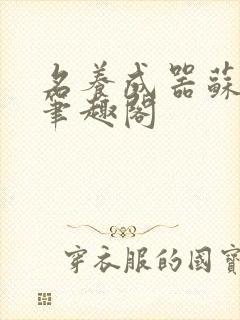 名養成器蘇
筆趣閣
穿衣服的國寶